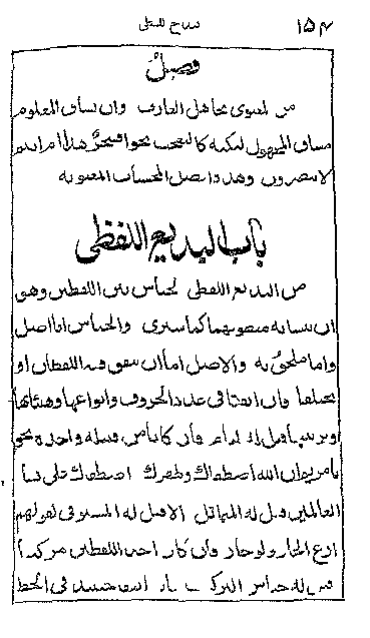 ١٥٣
فصل
من المعنوى تجاهل العارف وان يساق المعلوم
مساق المجهول لنكتة كالتعجب نحو افسحر هذا ام انتم
لا تبصرون وهذا فصل المحسنات المعنوية
باب البديع اللفظى
من البديع اللفظى الجناس بين اللفظين وهو
ان يتشابه منصوبهما كما سترى والجناس اما اصل
واما ملحق به والاصل اما ان يتفق فيه اللفظان او
يختلفا فان اتفقا فى عدد الحروف وانواعها وهيئاتها
وترتيبها قيل له تام فان كانا من قبيلة واحدة نحو
يا مريم ان الله اصطفاك وطهرك واصطفاك على نسا
العالمين قيل له المماثل الا قيل له المستوفى لقولهم
ارع الجار ولو جار وان كان احد اللفظين مركبا
قيل له جناس التركيب فى الخط